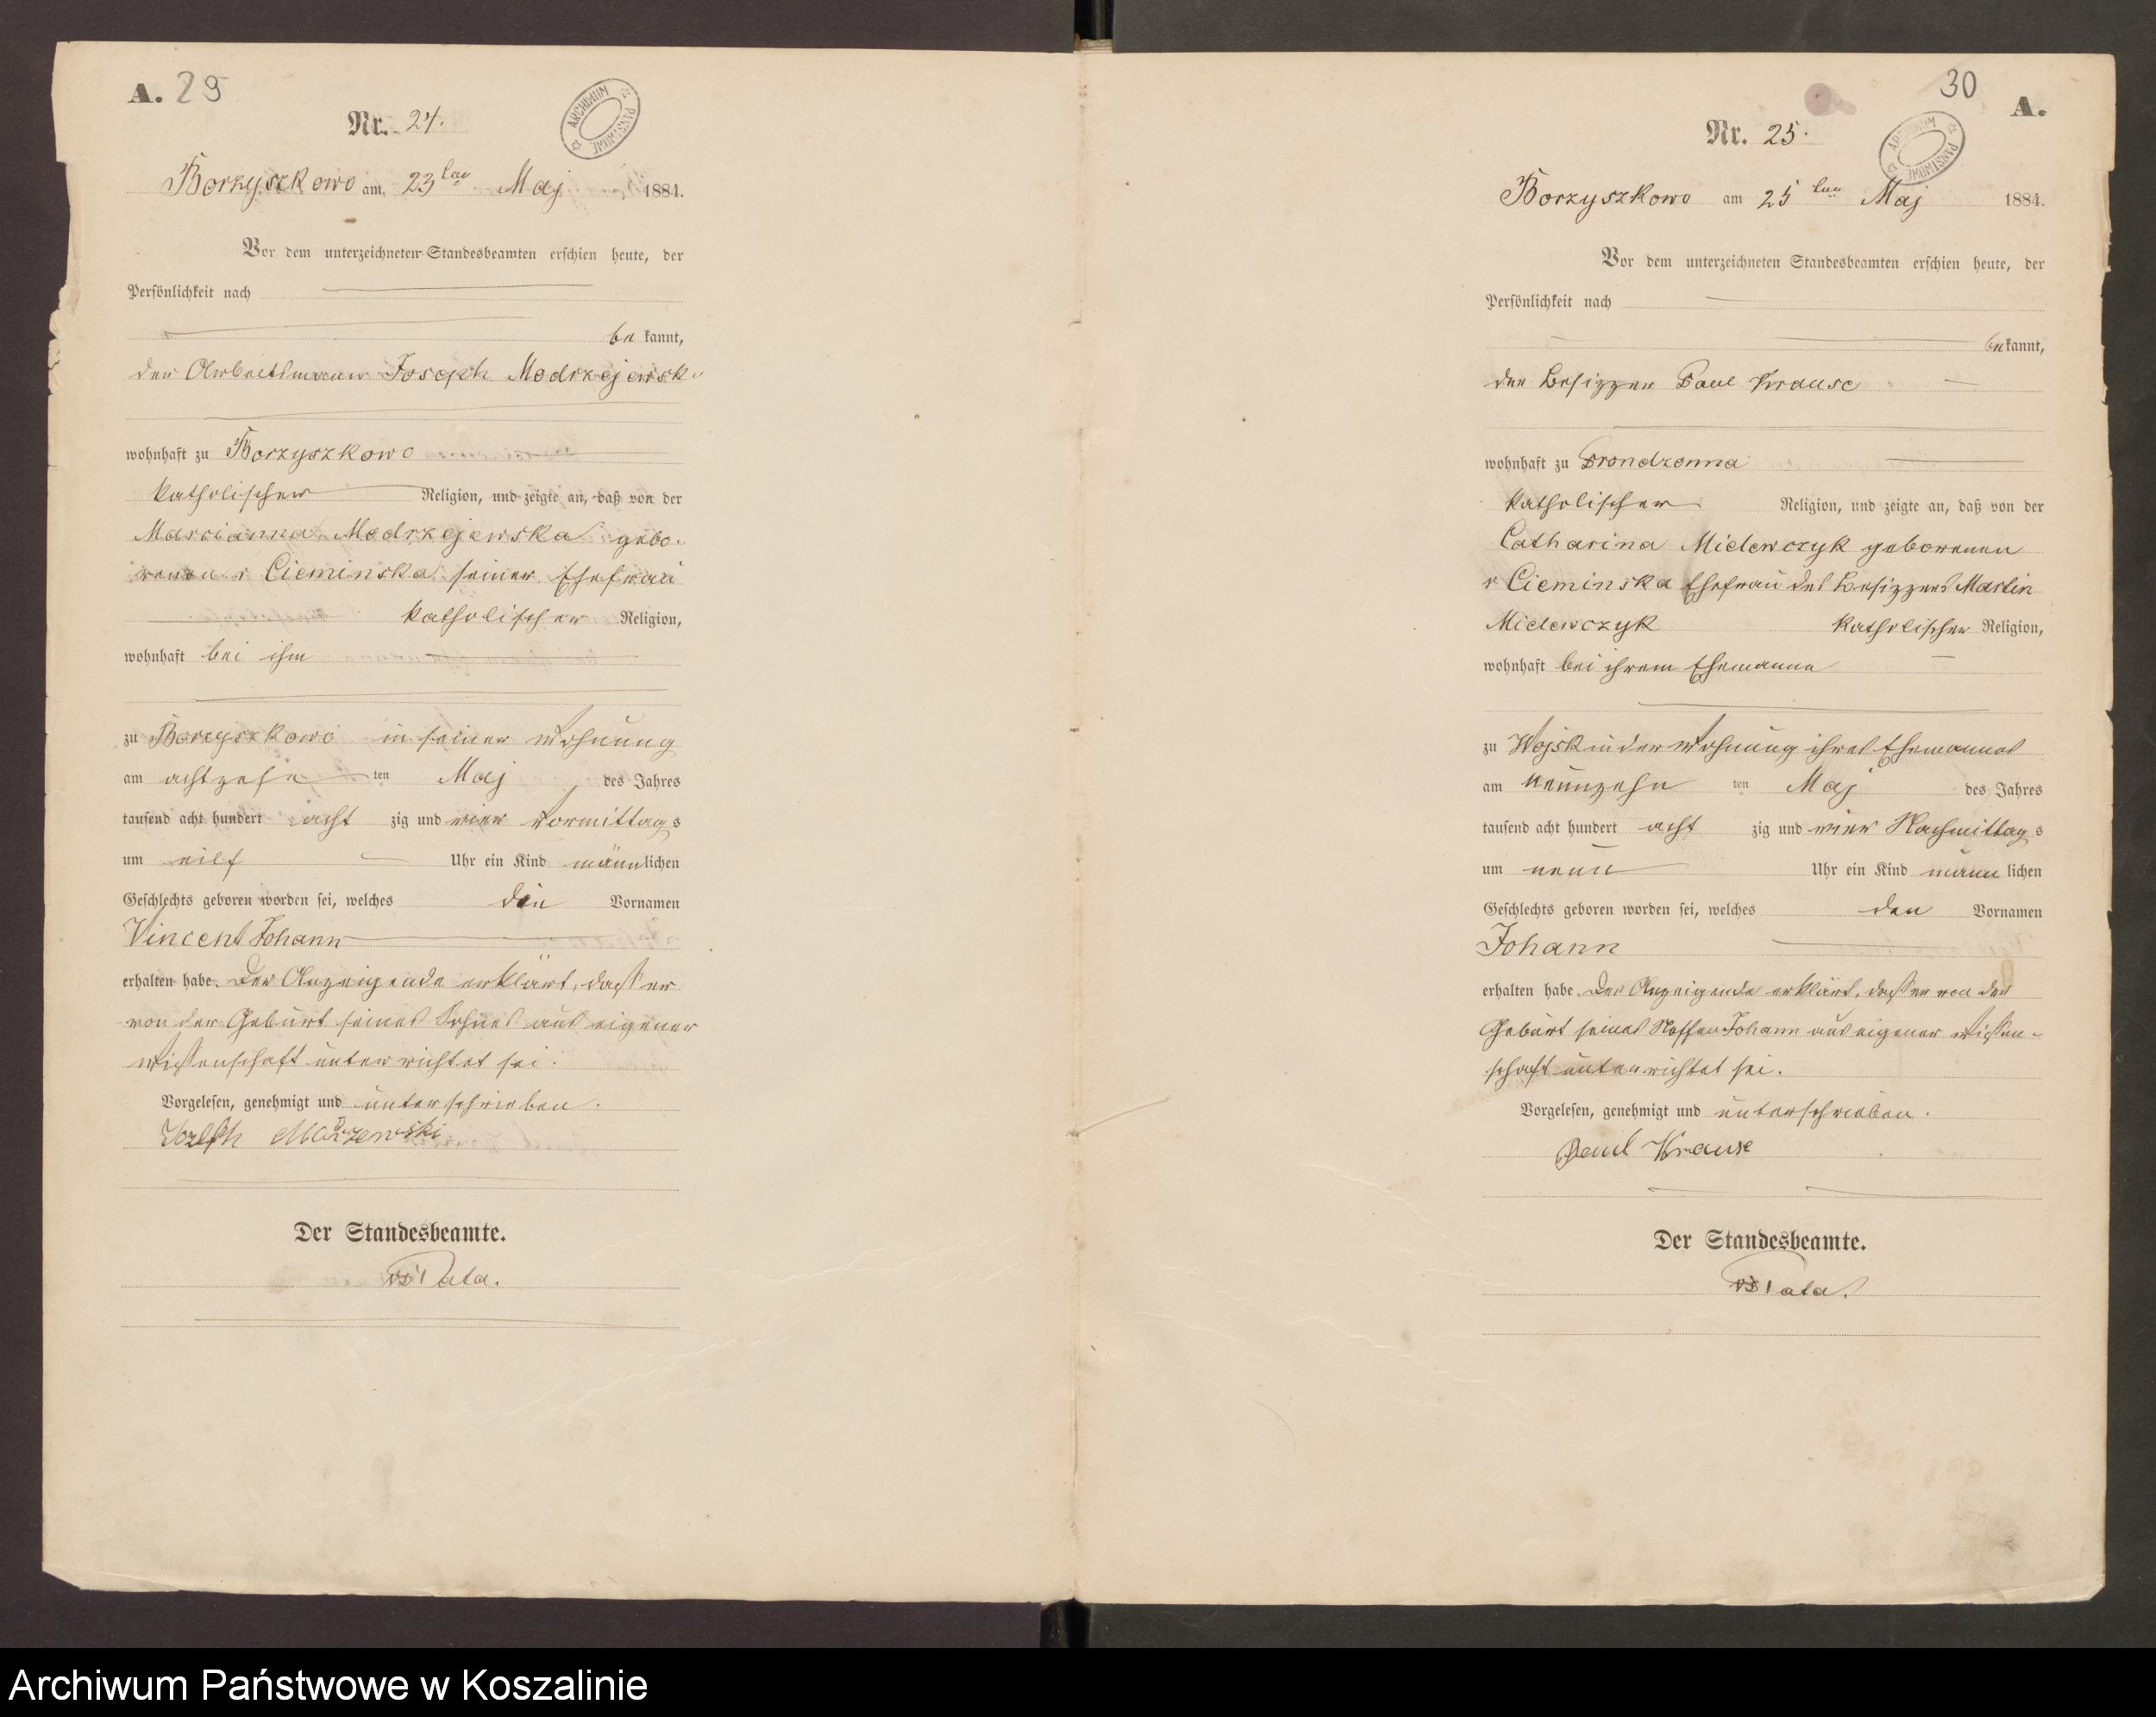 A. 29
Nr. 24.
Borzyszkowo am 23ten Maj 1884.
Vor dem unterzeichneten Standesbeamten erschien heute, der
Persönlichkeit nach
be kannt,
der Arbeitsmann Joseph Modrzejewski
wohnhaft zu Borzyszkowo
katholischer Religion, und zeigte an, daß von der
Marcianna Modrzejewska gebo-
renen r Cieminska seiner Ehefrau
katholischer Religion,
wohnhaft bei ihm
zu Borzyszkowo in seiner Wohnung
am achtzehn ten Maj des Jahres
tausend acht hundert acht zig und vier Vormittags
um eilf Uhr ein Kind männlichen
Geschlechts geboren worden sei, welches den Vornamen
Vincent Johann
erhalten habe. Der Anzeigende erklärt, dass er
von der Geburt seines Sohnes aus eigener
Wissenschaft unterrichtet sei.
Vorgelesen, genehmigt und unterschrieben.
Der Standesbeamte.
ARCHIWUM PAŃSTWOWE
30
A.
Nr. 25.
Borzyszkowo am 25ten Maj 1884.
Vor dem unterzeichneten Standesbeamten erschien heute, der
Persönlichkeit nach
be kannt,
der Besizzer Paul Krause
wohnhaft zu Prondzonna
katholischer Religion, und zeigte an, daß von der
Catharina Mielewczyk geborenen
r Cieminska Ehefrau des Besizzers Martin
Mielewczyk katholischer Religion,
wohnhaft bei ihrem Ehemanne
zu Wojsk in der Wohnung ihres Ehemannes
am neunzehn ten Maj des Jahres
tausend acht hundert acht zig und vier Nachmittags
um neun Uhr ein Kind männ lichen
Geschlechts geboren worden sei, welches den Vornamen
Johann
erhalten habe. Der Anzeigende erklärt, dass er von der
Geburt seines Neffen Johann aus eigener Wissen-
schaft unterrichtet sei.
Vorgelesen, genehmigt und unterschrieben.
Paul Krause
Der Standesbeamte.
ARCHIWUM PAŃSTWOWE
Archiwum Państwowe w Koszalinie